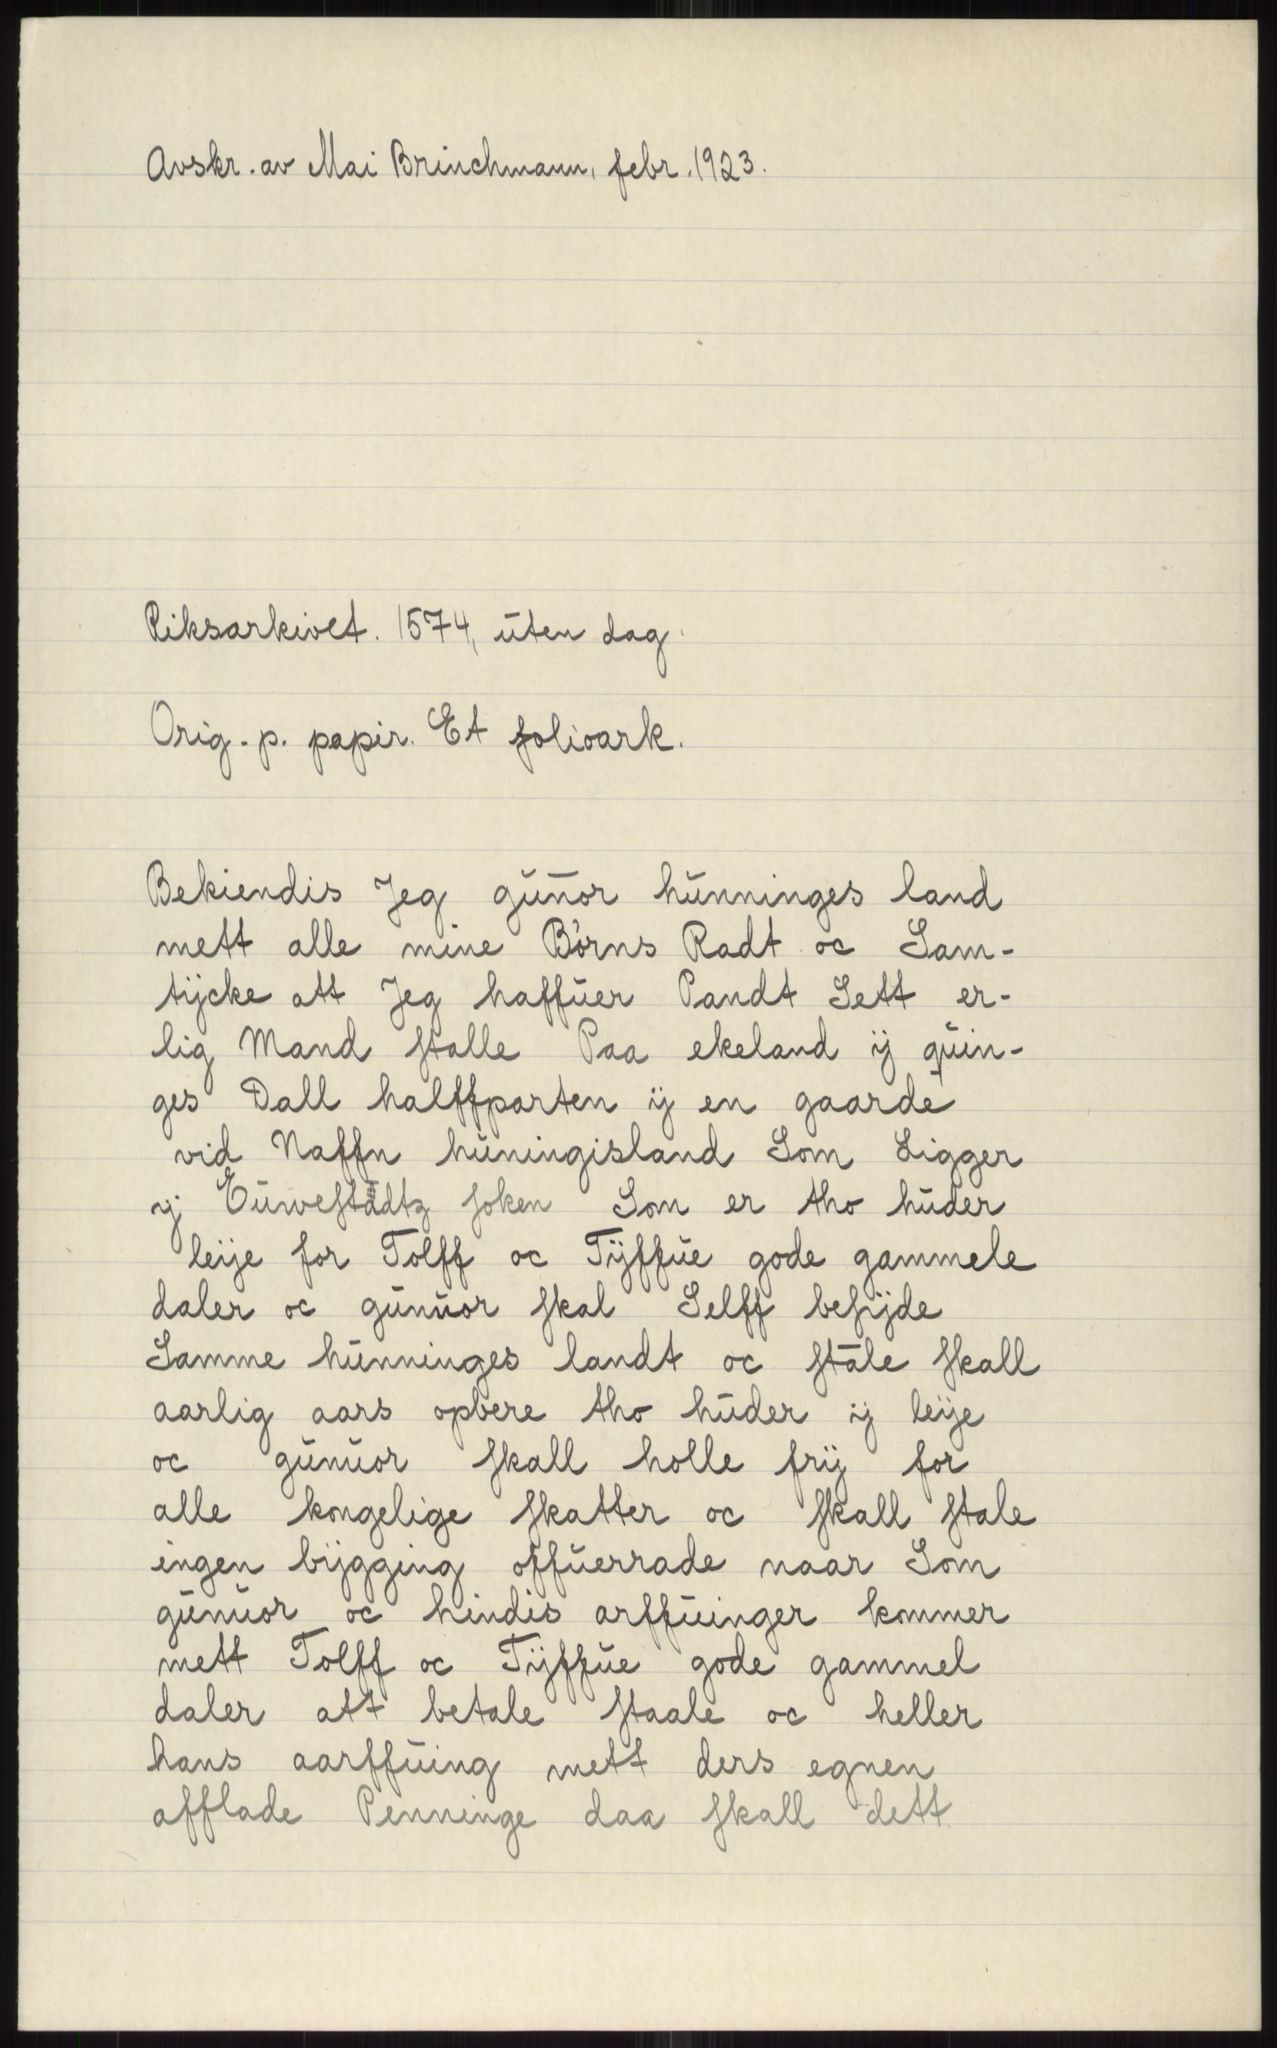 Avskr. av Mai Brinchmann, febr. 1923.
Riksarkivet. 1574, uten dag.
Orig. p. papir. Et folioark.
Bekiendis Jeg guñor hunninges land
mett alle mine Börns Radt oc Sam-
tÿcke att Jeg haffuer Pandt Sett er-
lig Mand stalle Paa ekeland ÿ quin-
ges Dall halffparten ÿ en gaarde
vid Naffn huningisland Som Ligger
ÿ soken Som er tho huder
leÿe for Tolff oc Tÿffue gode gammele
daler oc gunuor skal Selff besÿde
Samme hunninges landt oc ståle skall
aarlig aars opbere tho huder ÿ leÿe
oc gunuor skall holle frÿ for
alle kongelige skatter oc skall stale
ingen bÿgging offuerrade naar Som
gunuor oc hindis arffuinger kommer
mett Tolff oc Tÿffue gode gammel
daler att betale staale oc heller
hans aarffuing mett ders egnen
afflade Penninge daa skall dett